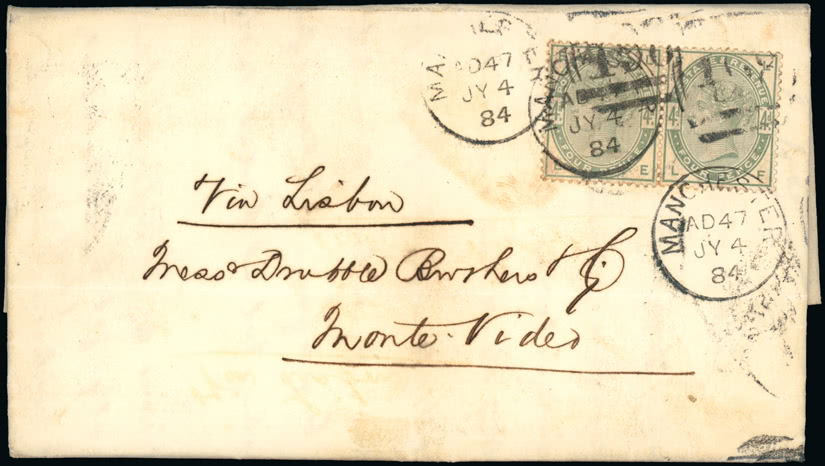 MANCHESTER
AD47
JY 4
84
MANCHESTER
AD
JY 4
84
POSTAGE & REVENUE
4D
FOUR PENCE
E
POSTAGE & REVENUE
4D
FOUR PENCE
L F
MANCHESTER
AD47
JY 4
84
Via Lisbon
Mess Drabble Brothers & Co
Monte-Video